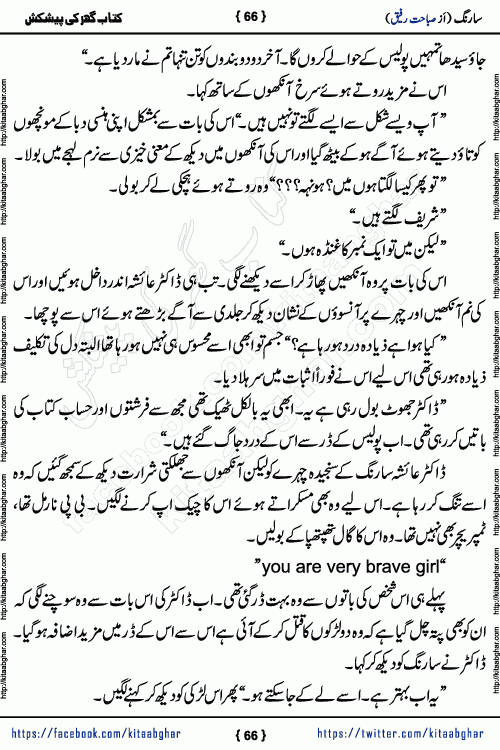 سارنگ (از صباحت رفیق) { 66 } کتاب گھر کی پیشکش
جاؤ سیدھا تمہیں پولیس کے حوالے کروں گا۔ آخر دو دو بندوں کو تن تنہا تم نے مار دیا ہے۔“
اس نے مزید روتے ہوئے سرخ آنکھوں کے ساتھ کہا۔
”آپ ویسے شکل سے ایسے لگتے تو نہیں ہیں۔“ اس کی بات سے بمشکل اپنی ہنسی دبا کے مونچھوں
کو تاؤ دیتے ہوئے آگے ہو کے بیٹھ گیا اور اس کی آنکھوں میں دیکھ کے معنی خیزی سے نرم لہجے میں بولا۔
”تو پھر کیسا لگتا ہوں میں؟ ہونہہ؟؟؟“ وہ روتے ہوئے ہچکی لے کر بولی۔
”شریف لگتے ہیں۔“
”لیکن میں تو ایک نمبر کا غنڈہ ہوں۔“
اس کی بات پر وہ آنکھیں پھاڑ کر اسے دیکھنے لگی۔ تب ہی ڈاکٹر عائشہ اندر داخل ہوئیں اور اس
کی نم آنکھیں اور چہرے پر آنسوؤں کے نشان دیکھ کر جلدی سے آگے بڑھتے ہوئے اس سے پوچھا۔
”کیا ہوا ہے ذیادہ درد ہو رہا ہے؟“ جسم تو ابھی اسے محسوس ہی نہیں ہو رہا تھا البتہ دل کی تکلیف
ذیادہ ہو رہی تھی اس لیے اس نے فوراً اثبات میں سر ہلا دیا۔
”ڈاکٹر جھوٹ بول رہی ہے یہ۔ ابھی یہ بالکل ٹھیک تھی مجھ سے فرشتوں اور حساب کتاب کی
باتیں کر رہی تھی۔ اب پولیس کے ڈر سے اس کے درد جاگ گئے ہیں۔“
ڈاکٹر عائشہ سارنگ کے سنجیدہ چہرے کو لیکن آنکھوں سے جھلکتی شرارت دیکھ کے سمجھ گئیں کہ وہ
اسے تنگ کر رہا ہے۔ اس لیے وہ بھی مسکراتے ہوئے اس کا چیک اپ کرنے لگیں۔ بی پی نارمل تھا،
ٹمپریچر بھی نہیں تھا۔ وہ اس کا گال تھپتھپا کے بولیں۔
“you are very brave girl”
پہلے ہی اس شخص کی باتوں سے وہ بہت ڈر گئی تھی۔ اب ڈاکٹر کی اس بات سے وہ سوچنے لگی کہ
ان کو بھی پتہ چل گیا ہے کہ وہ دو لڑکوں کا قتل کر کے آئی ہے اس سے اس کے ڈر میں مزید اضافہ ہو گیا۔
ڈاکٹر نے سارنگ کو دیکھ کر کہا۔
”یہ اب بہتر ہے۔ اسے لے کے جا سکتے ہو۔“ پھر اس لڑکی کو دیکھ کر کہنے لگیں۔
https://facebook.com/kitaabghar { 66 } https://twitter.com/kitaabghar
http://kitaabghar.com